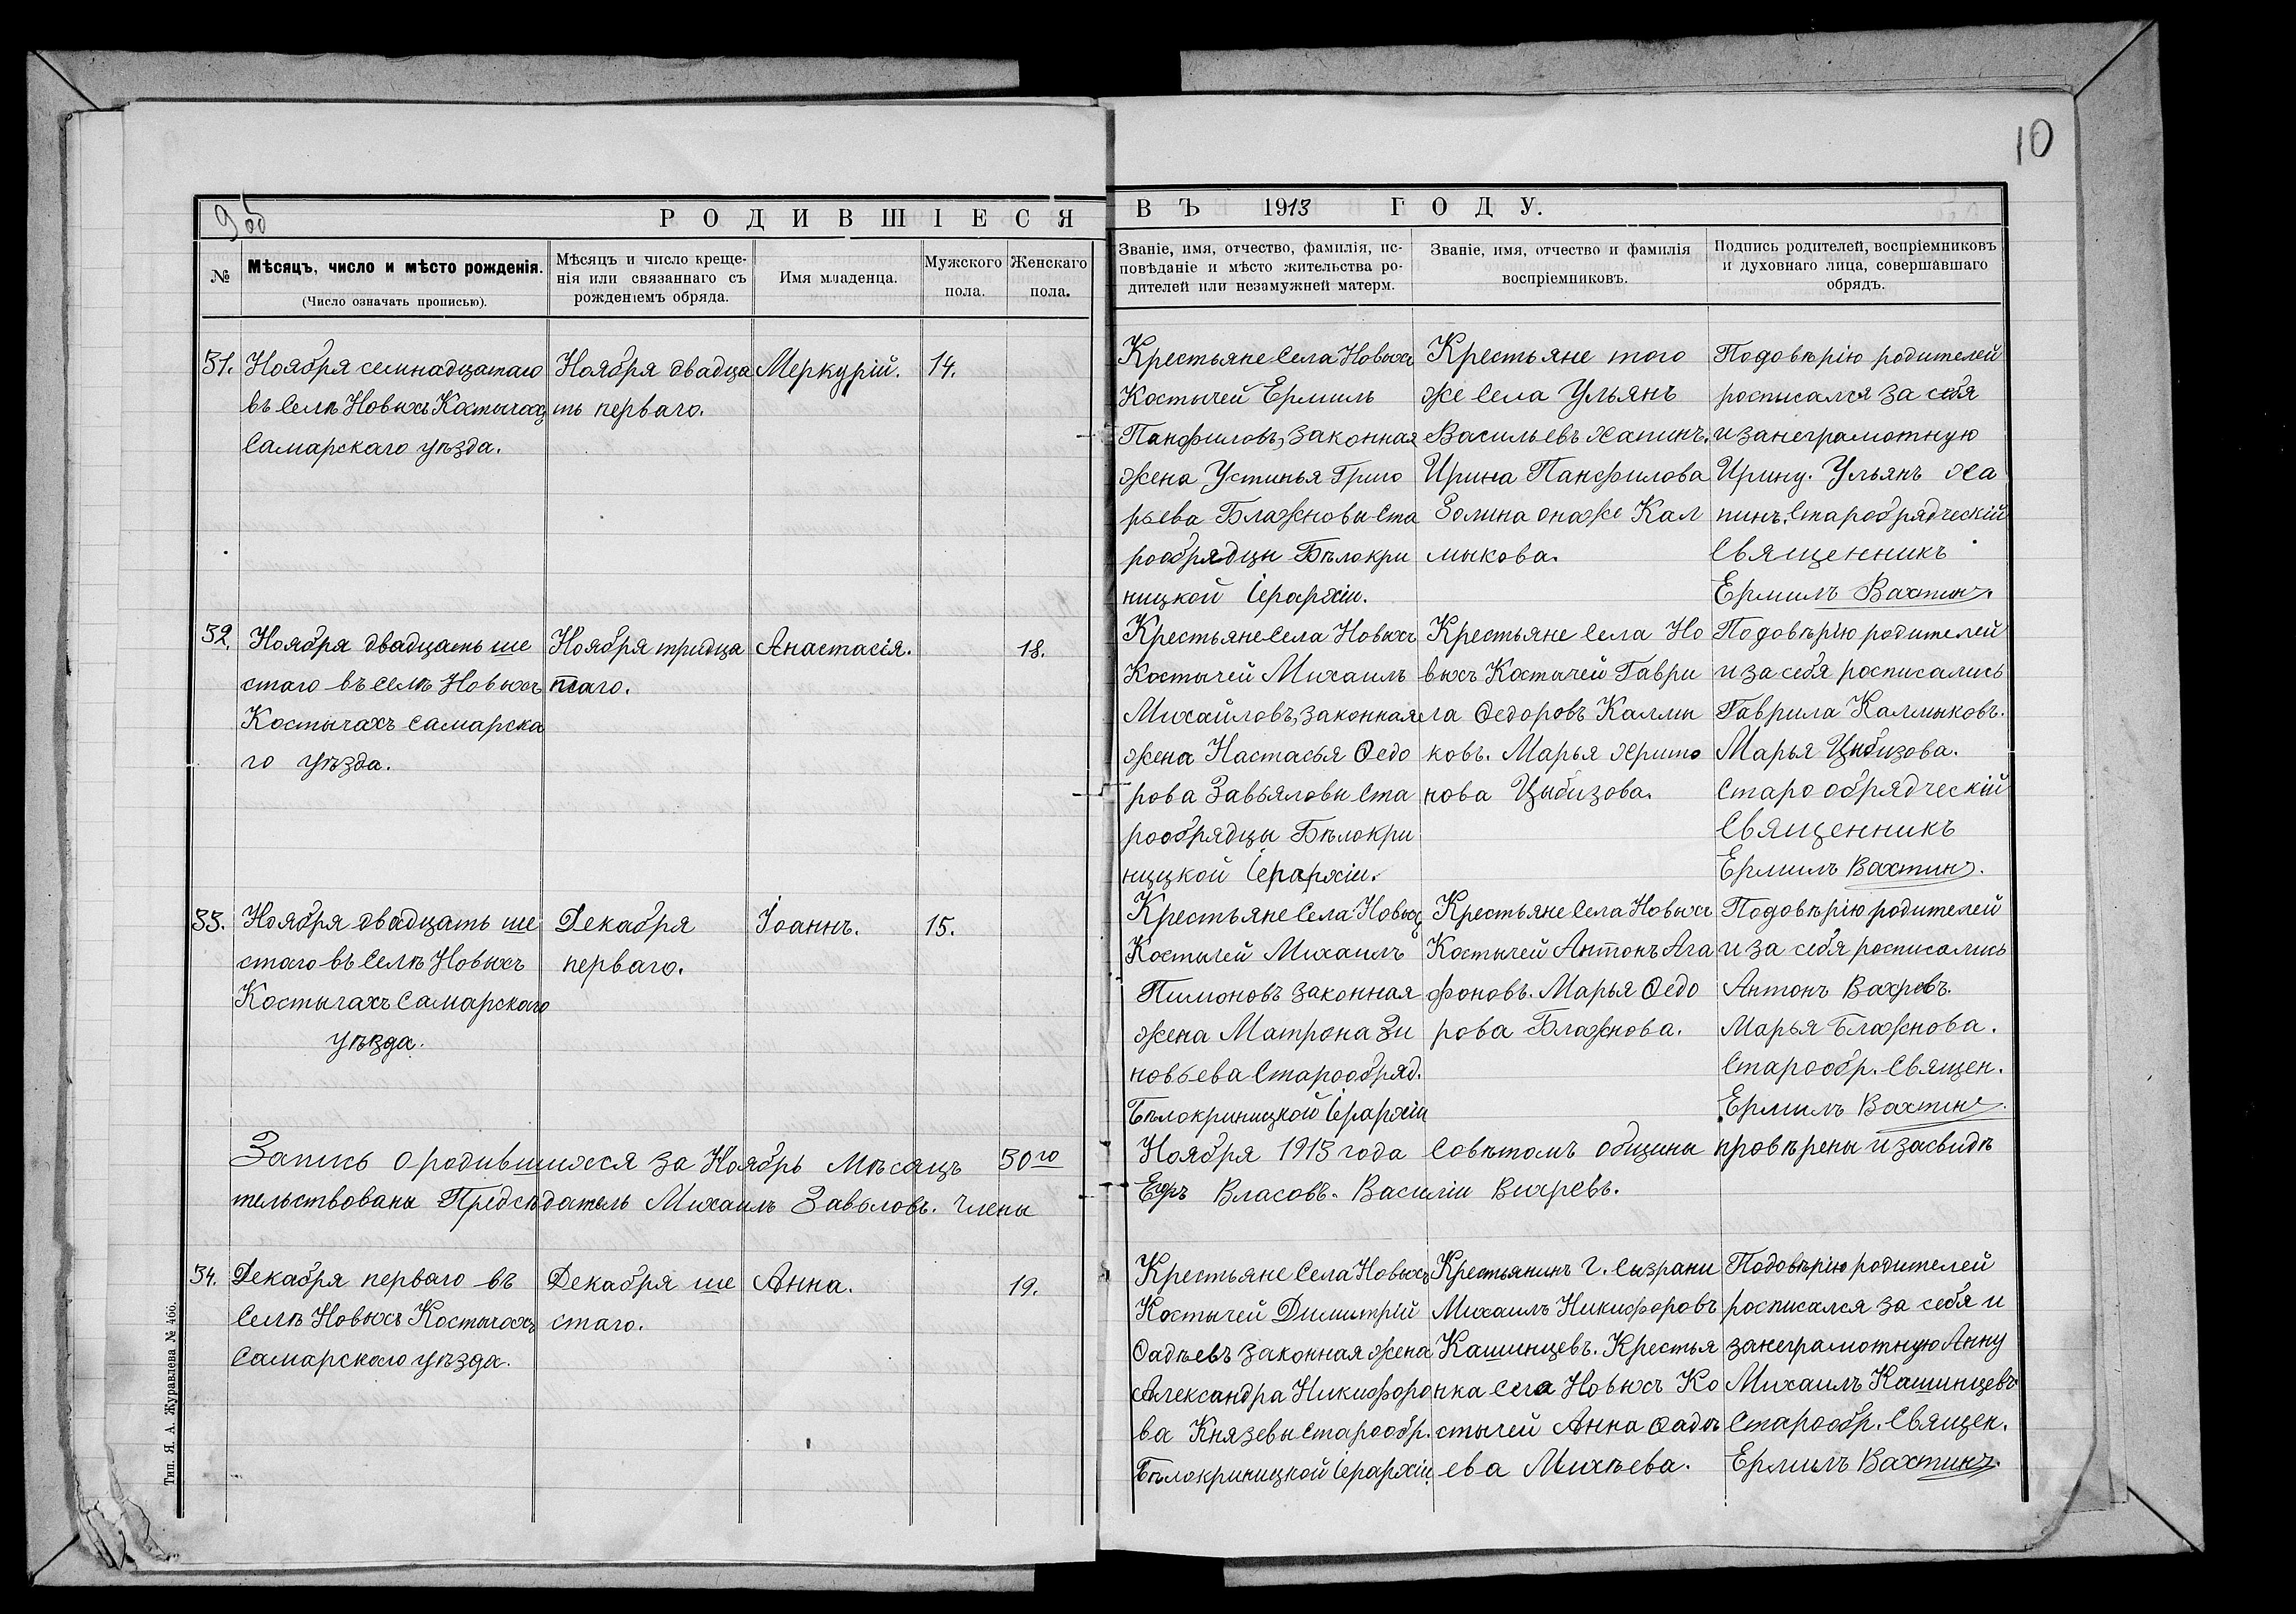 10
9 об
РОДИВШІЕСЯ ВЪ 1913 ГОДУ.
№
Мѣсяцъ, число и мѣсто рожденія.
(Число означать прописью).
Мѣсяцъ и число креще-
нія или связаннаго съ
рожденіемъ обряда.
Имя младенца.
Мужского
пола.
Женскаго
пола.
Званіе, имя, отчество, фамилія, ис-
повѣданіе и мѣсто жительства ро-
дителей или незамужней матери.
Званіе, имя, отчество и фамилія
воспріемниковъ.
Подпись родителей, воспріемниковъ
и духовнаго лица, совершавшаго
обрядъ.
31.
Ноября семнадцатаго
въ Селѣ Новыхъ Костычахъ
Самарскаго уѣзда.
Ноября двадца
ть перваго.
Меркурій.
14.
Крестьяне Села Новыхъ
Костычей Ермилъ
Панфиловъ, законная
жена Устинья Григо
рьева Блажновы Ста
рообрядцы Бѣлокри
ницкой Іерархіи.
Крестьяне того
же Села Ульянъ
Васильевъ Хапинъ.
Ирина Панфилова
Золина она же Кал
мыкова.
Подовѣрію родителей
росписался за себя
и занеграмотную
Ирину. Ульянъ Ха
пинъ. Старобрядческій
Священникъ
Ермилъ Вахтинъ.
32.
Ноября двадцать ше
стаго въ Селѣ Новыхъ
Костычахъ Самарска
го уѣзда.
Ноября тридца
таго.
Анастасія.
18.
Крестьяне Села Новыхъ
Костычей Михаилъ
Михайловъ, законная
жена Настасья Ѳедо
рова Завьяловы Ста
рообрядцы Бѣлокри
ницкой Іерархіи.
Крестьяне Села Но
выхъ Костычей Гаври
ла Ѳедоровъ Калмы
ковъ. Марья Харито
нова Цыбизова.
Подовѣрію родителей
и за себя росписались
Гаврила Калмыковъ.
Марья Цыбизова.
Старообрядческій
Священникъ
Ермилъ Вахтинъ.
33.
Ноября двадцать ше
стаго въ Селѣ Новыхъ
Костычахъ Самарскаго
уѣзда.
Декабря
перваго.
Іоаннъ.
15.
Крестьяне Села Новыхъ
Костычей Михаилъ
Пимоновъ законная
жена Матрона Зи
новьева Старообряд.
Бѣлокриницкой Іерархіи
Крестьяне Села Новыхъ
Костычей Антонъ Ага
фоновъ. Марья Ѳедо
рова Блажнова.
Подовѣрію родителей
и за себя росписались
Антонъ
Марья Блажнова.
Старообр. Священ.
Ермилъ Вахтинъ.
Запись о родившихся за Ноябрь Мѣсяцъ 30го Ноября 1913 года Совѣтомъ общины провѣрены и засвидѣ
тельствованы Предсѣдатель Михаилъ Заволовъ. Члены Егоръ Власовъ. Василіи Вихревъ.
34.
Декабря перваго въ
Селѣ Новыхъ Костычахъ
Самарскаго уѣзда.
Декабря ше
стаго.
Анна.
19.
Крестьяне Села Новыхъ
Костычей Димитрій
Ѳадѣевъ законная жена
Александра Никифоро
ва Князевы Старообр.
Бѣлокриницкой Іерархіи.
Крестьянинъ Г. Сызрани
Михаилъ Никифоровъ
Кашинцевъ. Крестья
нка Села Новыхъ Ко
стычей Анна Ѳадѣ
ева Михѣева.
Подовѣрію родителей
росписался за себя и
занеграмотную Анну
Михаилъ Кашинцевъ
Старообр. Священ.
Ермилъ Вахтинъ.
Тип. Я. А. Журавлева № 466.